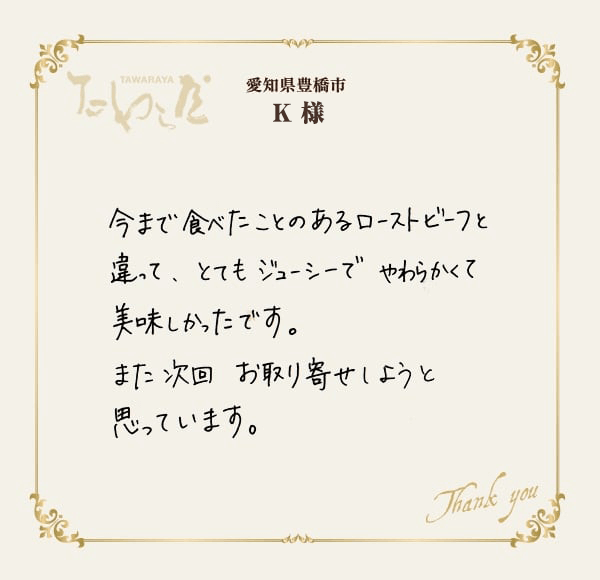 TAWARAYA
たわらや
愛知県豊橋市
K 様
今まで食べたことのあるローストビーフと
違って、とてもジューシーで やわらかくて
美味しかったです。
また次回 お取り寄せしようと
思っています。
Thank you